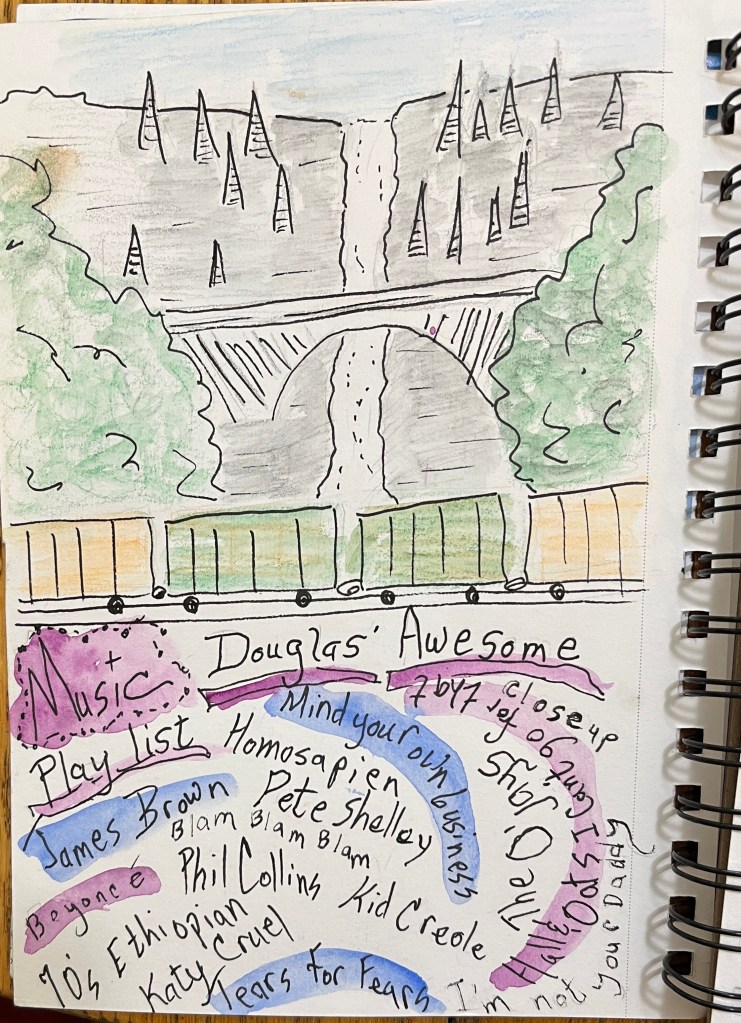 Douglas' Awesome
Music +
Play list
Mind your own business
close up
Homosapien
Pete Shelley
James Brown
Blam Blam Blam
The O'Jays
Hall & Oats I can't go for that
Beyoncé
Phil Collins
Kid Creole
70s Ethiopian
Katy Cruel
Tears for Fears
I'm not your Daddy